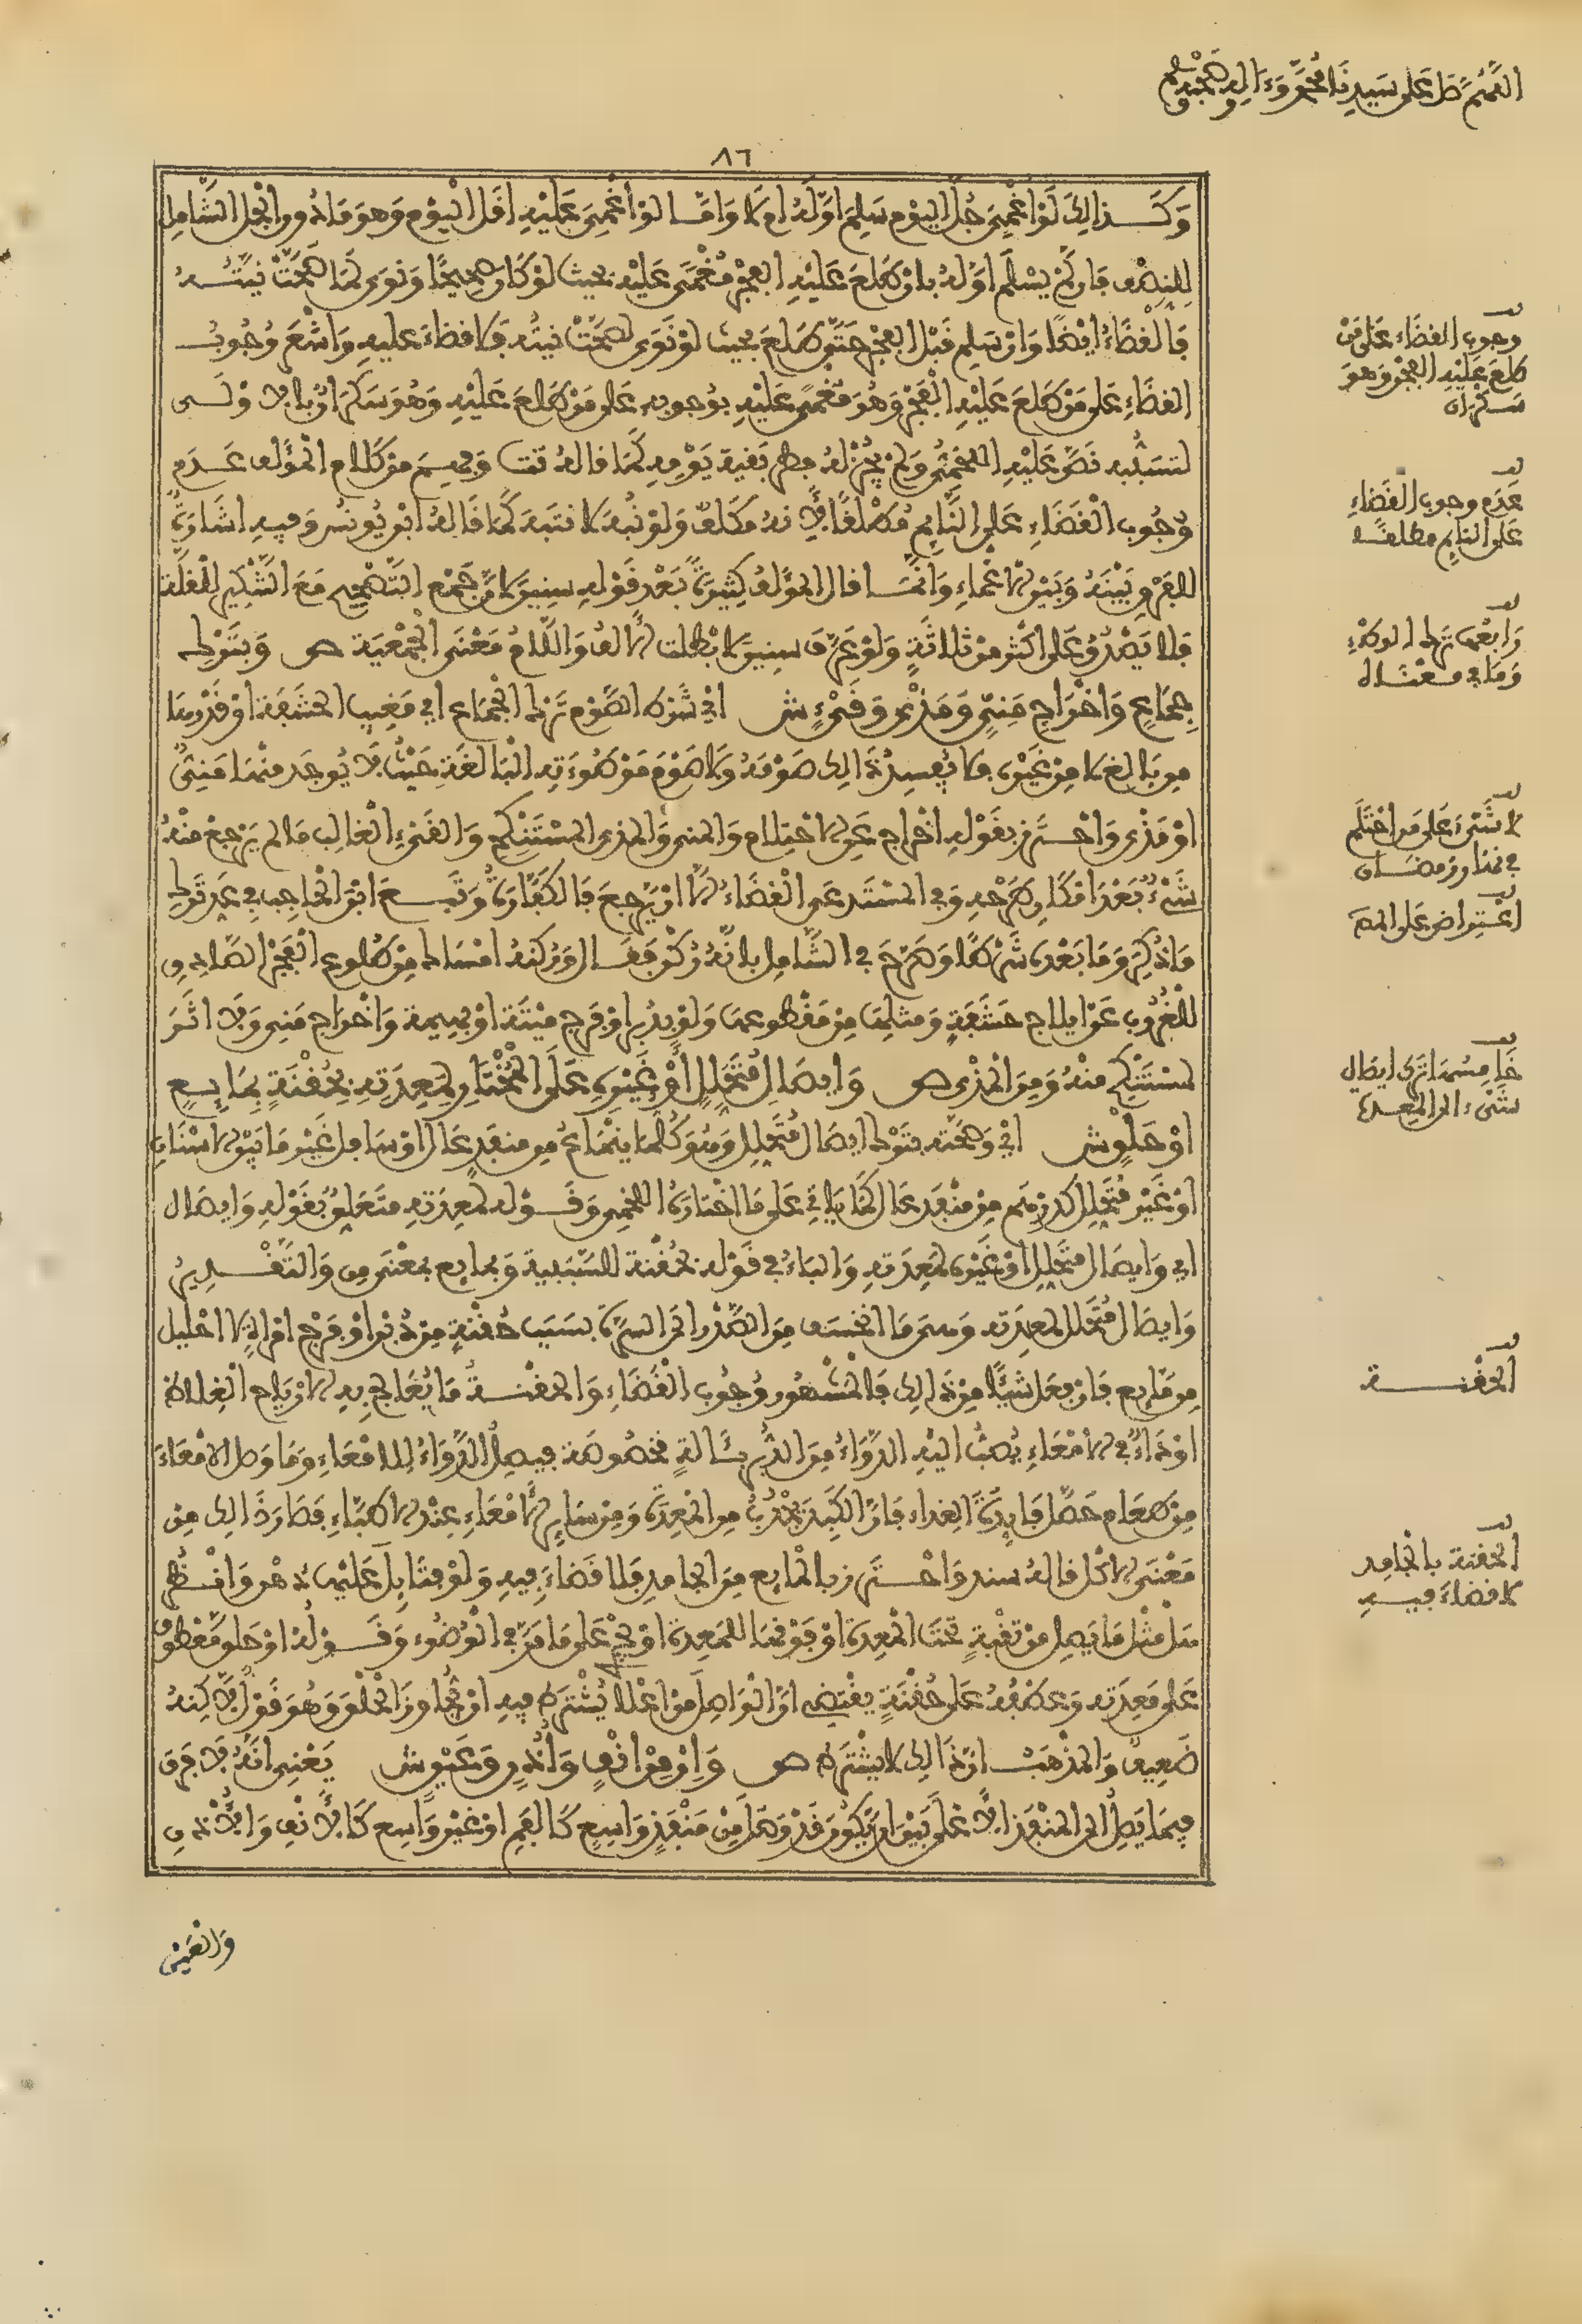 اللهم صل على سيدنا محمد وءاله وصحبه وسلم
٨٦
وكذلك لو أغمي جل اليوم سلم أوله أم لا وأما لو أغمي عليه أقل اليوم وهو ما دون الجل الشامل
للنصف فإن لم يسلم أوله بأن طلع عليه الفجر مغمى عليه بحيث لو كان صحيحا ونوى لما صحت نيته
فالقضاء أيضا وإن سلم قبل الفجر حتى طلع بحيث لو نوى لصحت نيته فلا قضاء عليه وأشعر وجوب
القضاء على من طلع عليه الفجر وهو مغمى عليه بوجوبه على من طلع عليه وهو سكران بالأولى
لتسببه نص عليه اللخمي ولم يجز له فطر بقية يومه كما قاله تت وفهم من كلام المؤلف عدم
وجوب القضاء على النائم مطلقا لأنه مكلف ولو نبه لانتبه كما قاله ابن يونس وفيه إشارة
للفرق بينه وبين الإغماء وإنما قال المؤلف كثيرة بعد قوله سنين لأن جمع التصحيح مع التنكير للقلة
فلا يصدق على أكثر من ثلاثة ولو عرف سنين لأبطلت الألف واللام معنى الجمعية ص وبترك
جماع وإخراج مني ومذي وقيء ش أي شرط الصوم ترك الجماع أي مغيب الحشفة أو قدرها
من بالغ لا من غيره فلا يفسد ذلك صومه ولا صوم موطوءته البالغة حيث لا يوجد منهما مني
أو مذي واحترز بقوله إخراج عن الاحتلام والمني والمذي المستنكح والقيء الغالب ما لم يرجع منه
شيء بعد إمكان طرحه وفي المستدعى القضاء إلا أن يرجع فالكفارة وتبع ابن الحاجب في عد ترك
ما ذكر وما بعده شرطا وصرح في الشامل بأنه ركن فقال وركنه إمساك من طلوع الفجر الصادق
للغروب عن إيلاج حشفة ومثلها من مقطوعها ولو بدبر أو فرج ميتة أو بهيمة وإخراج مني ولا أثر
لمستنكح منه ومن المذي ص وإيصال متحلل أو غيره على المختار لمعدته بحقنة بمائع
أو حلق ش أي وصحته بترك إيصال متحلل وهو كلما ينماع من منفذ عال أو سافل غير ما بين الأسنان
أو غير متحلل كدرهم من منفذ عال كما يأتي على ما اختاره اللخمي وقوله لمعدته متعلق بقوله وإيصال
أي وإيصال متحلل أو غيره لمعدته والباء في قوله بحقنة للسببية وبمائع بمعنى من والتقدير
وإيصال متحلل لمعدته وهي ما انخسف من الصدر إلى السرة بسبب حقنة من دبر أو فرج امرأة لا إحليل
من مائع فإن فعل شيئا من ذلك فالمشهور وجوب القضاء والحقنة ما يعالج به الأرياح الغلاظ
أو داء في الأمعاء يصب إليه الدواء من الدبر بئالة مخصوصة فيصل الدواء للأمعاء وما وصل الأمعاء
من طعام حصل فايدة الغداء فإن الكبد يجذب من المعدة ومن سائر الأمعاء عند الأطباء فصار ذلك من
معنى الأكل قاله سند واحترز بالمائع من الجامد فلا قضاء فيه ولو فتايل عليها دهن وانظر
هل مثل ما يصل من ثقبة تحت المعدة أو فوقها للمعدة أو يجري على ما مر في الوضوء وقوله أو حلق معطوف
على معدته وعطفه على حقنة يقتضي أن الواصل من أعلا يشترط فيه أن يجاوز الحلق وهو قول لاكنه
ضعيف والمذهب أن ذلك لا يشترط ص وإن من أنف وأذن وعين ش يعني أنه لا فرق
فيما يصل إلى المنفذ الأعلى بين أن يكون قد وصل من منفذ واسع كالفم أو غير واسع كالأنف والأذن
والعين
قف
وجوب القضاء على من
طلع عليه الفجر وهو
سكران
قف
عدم وجوب القضاء
على النايم مطلقا
قف
رابعها ترك الوطء
وما في معناه
قف
لا شيء على من احتلم
في نهار رمضان
قف
اعتراض على المص
قف
خامسها ترك ايصال
شيء الى المعدة
قف
الحقنة
قف
الحقنة بالجامد
لا قضاء فيه